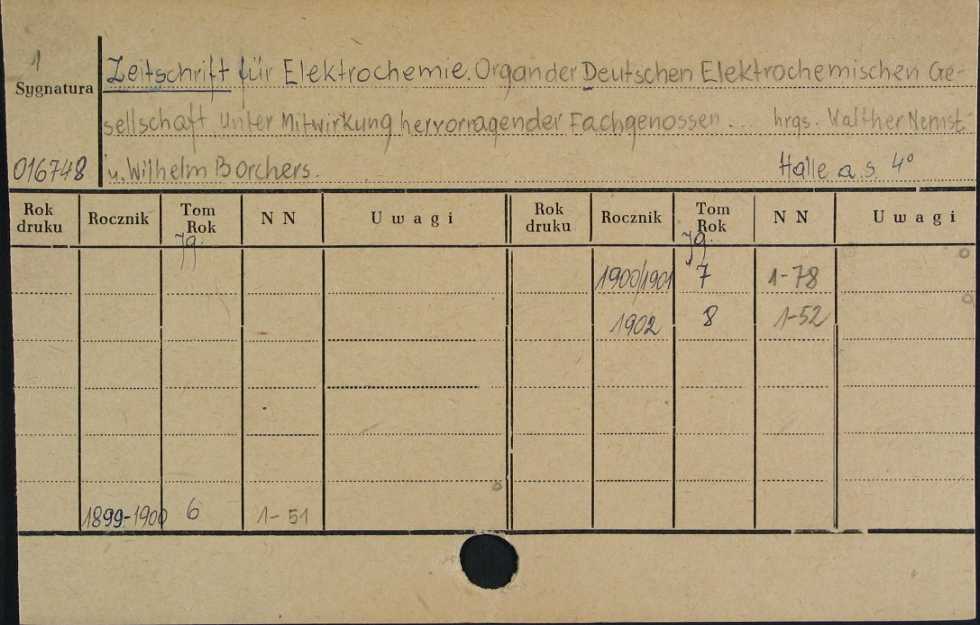 1
Zeitschrift für Elektrochemie. Organ der Deutschen Elektrochemischen Ge-
Sygnatura
sellschaft unter Mitwirkung hervorragender Fachgenossen ... hrgs. Walther Nernst
016748 u. Wilhelm Borchers. Halle a. s. 4°
Rok druku Rocznik Tom Rok N N Uwagi Rok druku Rocznik Tom Rok N N Uwagi
Jg. Jg.
1900/1901 7 1-78
1902 8 1-52
1899-1900 6 1-51